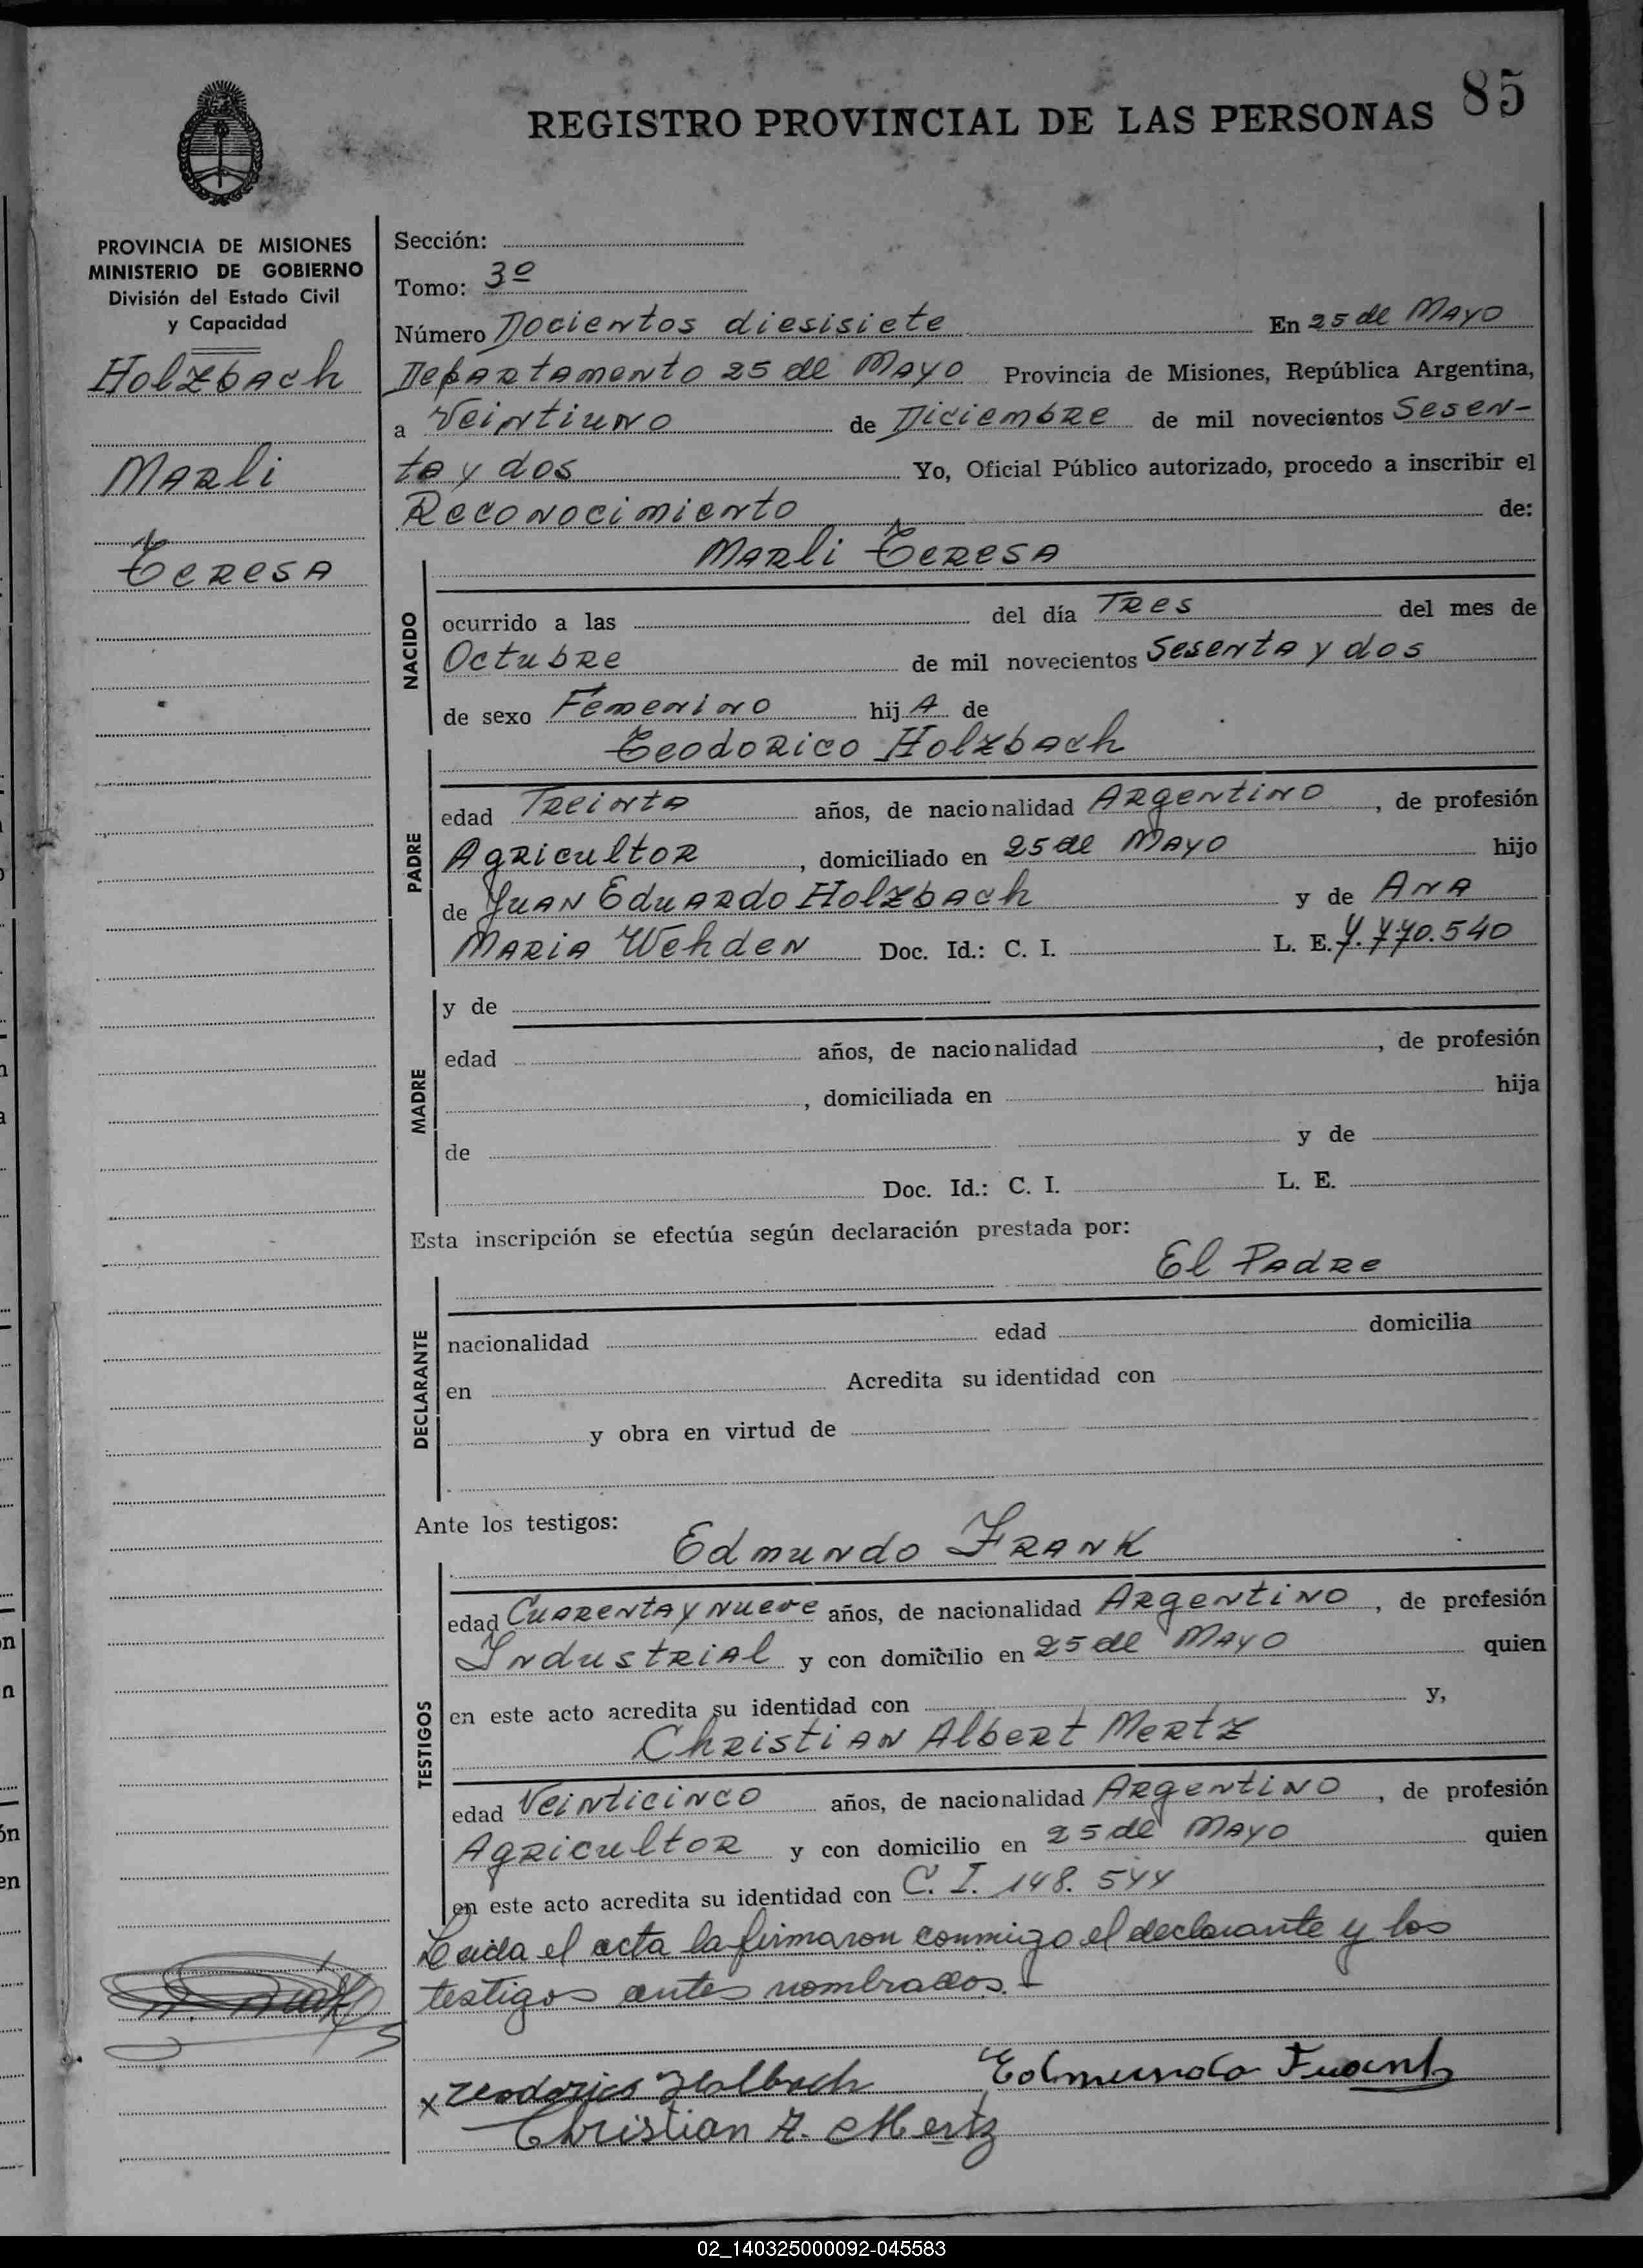 85
REGISTRO PROVINCIAL DE LAS PERSONAS
PROVINCIA DE MISIONES
MINISTERIO DE GOBIERNO
División del Estado Civil
y Capacidad
Holzbach
Marli
Teresa
Sección:
Tomo: 3º
Número Docientos diesisiete En 25 de Mayo
Departamento 25 de Mayo Provincia de Misiones, República Argentina,
a Veintiuno de Diciembre de mil novecientos Sesen-
ta y dos Yo, Oficial Público autorizado, procedo a inscribir el
Reconocimiento de:
Marli Teresa
NACIDO
ocurrido a las del día Tres del mes de
Octubre de mil novecientos Sesenta y dos
de sexo Femenino hij A de
Teodorico Holzbach
PADRE
edad Treinta años, de nacionalidad Argentino, de profesión
Agricultor, domiciliado en 25 de Mayo hijo
de Juan Eduardo Holzbach y de Ana
Maria Wehden Doc. Id.: C. I. L. E. 7.770.540
MADRE
y de
edad años, de nacionalidad , de profesión
, domiciliada en hija
de y de
Doc. Id.: C. I. L. E.
Esta inscripción se efectúa según declaración prestada por:
El Padre
DECLARANTE
nacionalidad edad domicilia
en Acredita su identidad con
y obra en virtud de
Ante los testigos:
Edmundo Frank
TESTIGOS
edad Cuarenta y nueve años, de nacionalidad Argentino, de profesión
Industrial y con domicilio en 25 de Mayo quien
en este acto acredita su identidad con y,
Christian Albert Mertz
edad Veinticinco años, de nacionalidad Argentino, de profesión
Agricultor y con domicilio en 25 de Mayo quien
en este acto acredita su identidad con C. I. 148.544
Leida el acta la firmaron conmigo el declarante y los
testigos antes nombrados.-
x Teodorico Holbach Edmundo Frank
Christian A. Mertz
02_140325000092-045583